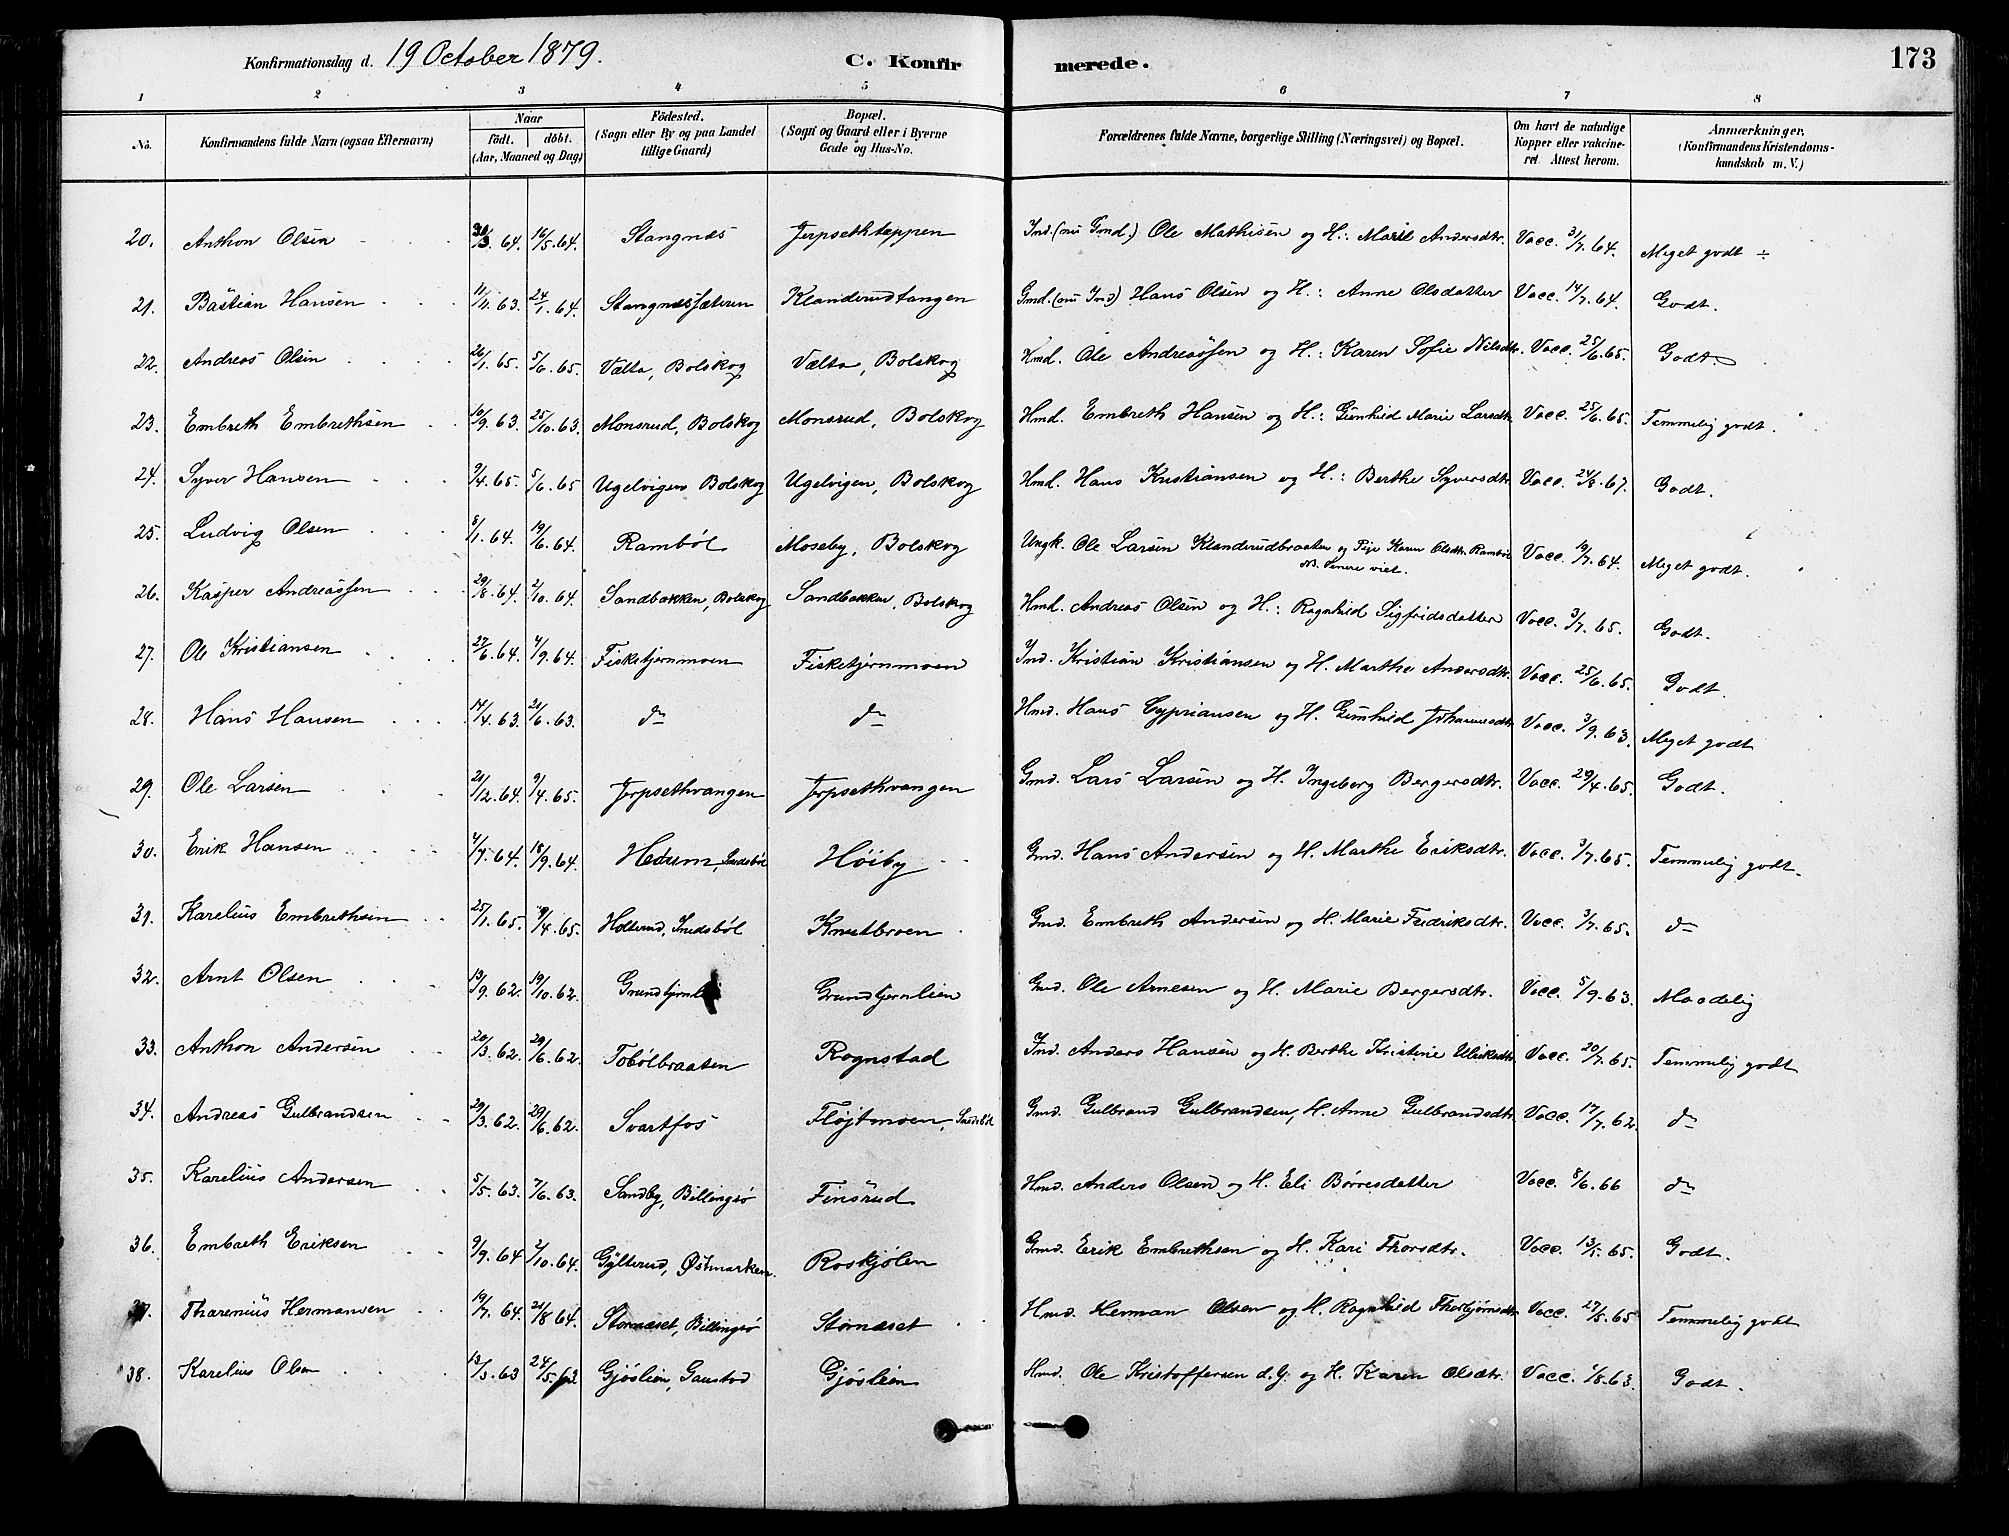 Konfirmationsdag d. 19 October 1879. C. Konfirmerede. 173
1 2 3 4 5 6 7 8
No. Konfirmandens fulde Navn (ogsaa Efternavn) Naar født. døbt. (Aar, Maaned og Dag) Födested. (Sogn eller By og paa Landet tillige Gaard) Bopæl. (Sogn og Gaard eller i Byerne Gade og Hus-No. Forældrenes fulde Navne, borgerlige Stilling (Næringsvei) og Bopæl. Om havt de naturlige Kopper eller vakcineret. Attest herom. Anmærkninger. (Konfirmandens Kristendomskundskab m. V.)
20. Anthon Olsen 31/3. 64. 16/5. 64. Stangnæs Jerpsethteppen Ind. (nu Gmd.) Ole Mathisen og H.: Marie Andersdtr. Vacc. 3/7. 64. Meget godt ÷
21. Bastian Hansen 11/11. 63. 24/1. 64. Stangnæssæteren Klanderudtangen Gmd. (nu Ind) Hans Olsen og H.: Anne Olsdatter Vacc. 14/7. 64. Godt.
22. Andreas Olsen 26/1. 65. 5/6. 65. Vælta, Bolskog Vælta, Bolskog Hmd. Ole Andreassen og H.: Karen Sofie Nilsdtr. Vacc. 25/6. 65. Godt.
23. Embreth Embrethsen 10/9. 63. 25/10. 63. Monsrud, Bolskog Monsrud, Bolskog Hmd. Embreth Hansen og H.: Gunhild Marie Larsdtr Vacc. 25/6. 65. Temmelig godt.
24. Syver Hansen 9/4. 65. 5/6. 65 Ugelvigen Bolskog Ugelvigen, Bolskog Hmd. Hans Kristiansen og H.: Berthe Syversdtr Vacc. 24/8. 67. Godt.
25. Ludvig Olsen 8/1. 64. 19/6. 64. Rambøl Moseby, Bolskog Ungk. Ole Larsen Klanderudbraaten og Pige Karen Olsdtr. Rambøl NB. Senere viet. Vacc. 19/7. 64. Meget godt.
26. Kasper Andreassen 29/8. 64. 2/10. 64. Sandbakken, Bolskog Sandbakken, Bolskog Hmd. Andreas Olsen og H.: Ragnhild Sigfridsdatter Vacc. 3/7. 65. Godt.
27. Ole Kristiansen 27/6. 64. 4/9. 64. Fisketjernmoen Fisketjernmoen Ind. Kristian Kristiansen og H. Marthe Andersdtr. Vacc. 25/6. 65. Godt.
28. Hans Hansen 14/4. 63. 21/6. 63. do do Hmd. Hans Cypriansen og H. Gunhild Johannesdtr Vacc. 3/9. 63. Meget godt
29. Ole Larsen 21/12. 64. 9/4. 65. Jerpsethvangen Jerpsethvangen Gmd. Lars Larsen og H. Ingeborg Bergersdtr. Vacc. 29/4. 65. Godt.
30. Erik Hansen 4/7. 64. 18/9. 64. Hedum, Snedsbøl Høiby Gmd. Hans Andersen og H. Marthe Eriksdtr. Vacc. 3/7. 65. Temmelig godt.
31. Karelius Embrethsen 25/1. 65. 9/4. 65. Holterud, Snedsbøl Knutbroen Gmd. Embreth Andersen og H. Marie Fredriksdtr. Vacc. 3/7. 65. do
32. Arnt Olsen 13/9. 62. 19/10. 62. Grundtjernlien Grundtjernlien Gmd. Ole Arnesen og H. Marie Bergersdtr. Vacc. 5/9. 63. Maadelig
33. Anthon Andersen 20/3. 62. 29/6. 62. Tobølbraaten Rognstad Ind. Anders Hansen og H. Berthe Kristine Ulriksdtr Vacc. 20/7. 65. Temmelig godt
34. Andreas Gulbrandsen 29/3. 62. 29/6. 62. Svartfos Fløjtmoen, Snedsbøl Gmd. Gulbrand Gulbrandsen, H. Anne Gulbrandsdtr Vacc. 17/7. 62. do
35. Karelius Andersen 5/5. 63. 7/6. 63. Sandby, Billingsø Finsrud Hmd. Anders Olsen og H. Eli Børresdatter Vacc. 8/6. 66 do
36. Embreth Eriksen 9/9. 64 2/10. 64. Gylterud, Østmarken. Roskjølen Gmd. Erik Embrethsen og H. Kari Thorsdtr. Vacc. 13/5. 65. Godt.
37. Tharenius Hermansen 19/7. 64. 21/8 64. Stornæset, Billingsø Stornæset Hmd. Herman Olsen og H. Ragnhild Thorbjørnsdtr Vacc. 27/5. 65 Temmelig godt
38. Karelius Olsen 13/3. 63 24/5. 63 Gjøslien, Gaustad Gjøslien Hmd. Ole Kristoffersen d. y. og H. Karen Olsdtr. Vacc. 1/8. 63. Godt.